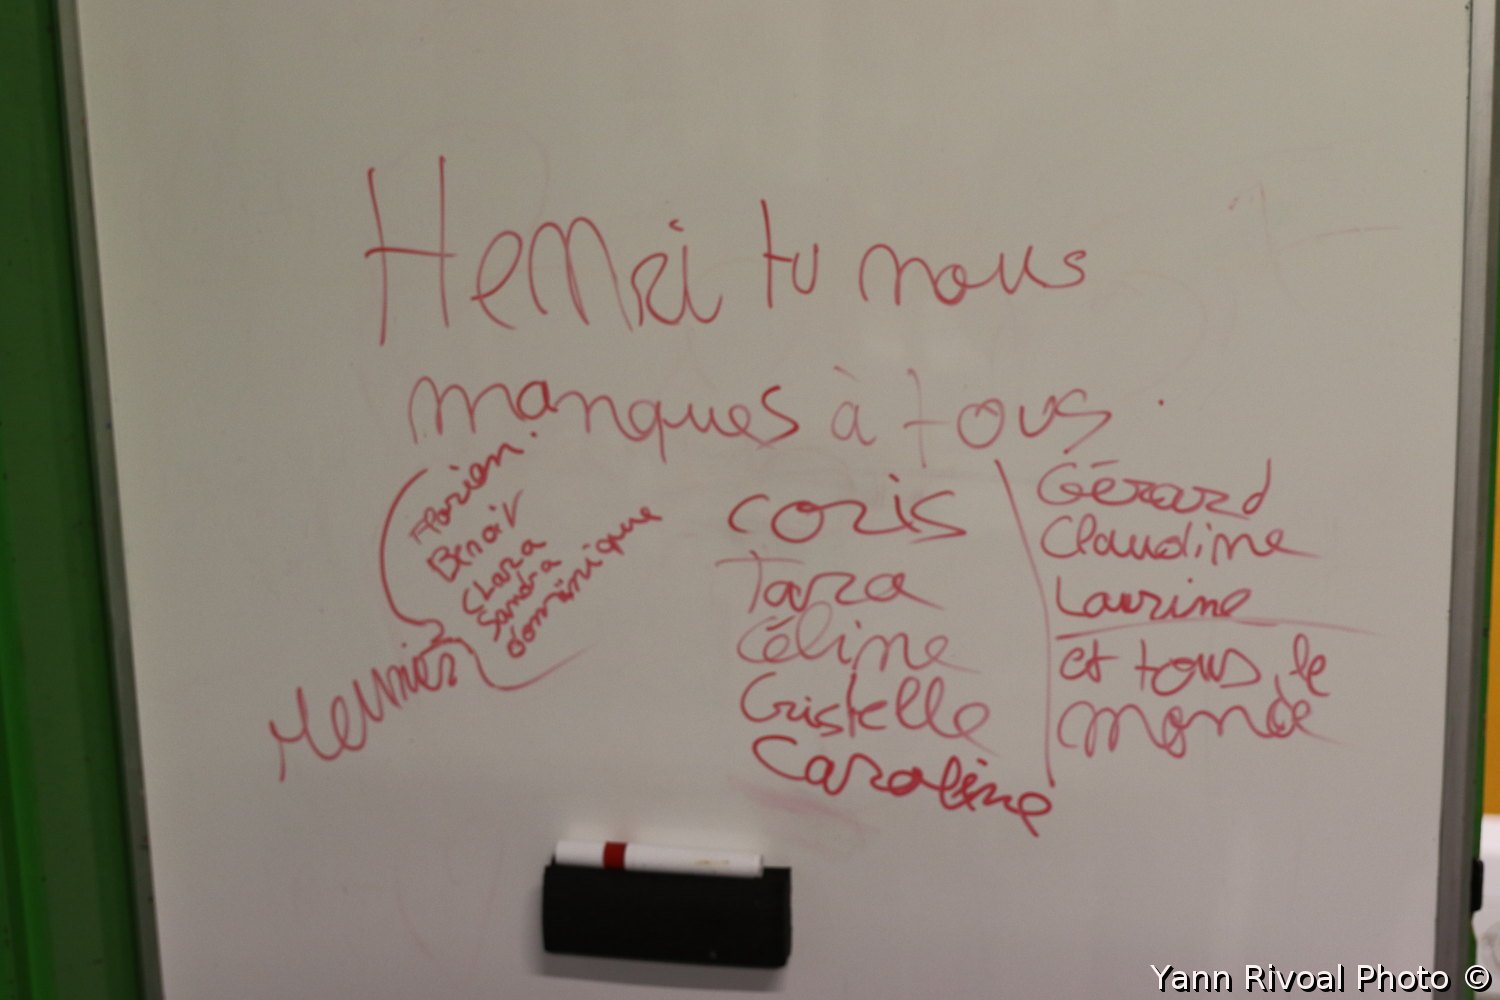 Henri tu nous
manques à tous.
Florian.
Benoit
Clara
Sandra
dominique
coris
Tara
Céline
Cristelle
Caroline
Gérard
Claudine
Laurine
et tous le
monde
Yann Rivoal Photo ©